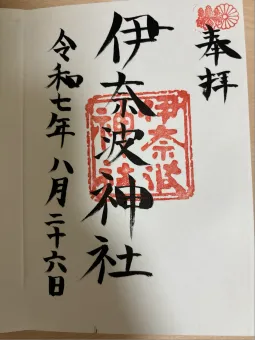 奉拝
伊奈波神社
伊奈波
神社
令和七年八月二十六日